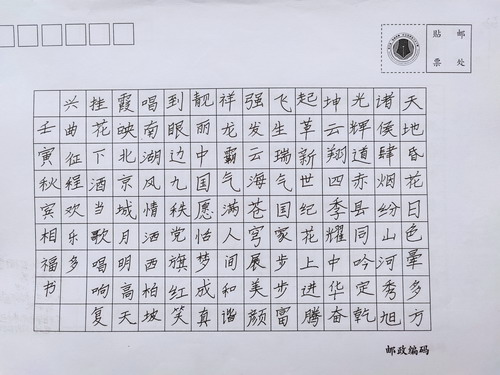 贴邮
票处
天地昏花日色晕多方
诸侯肆烟纷山河秀旭
光辉道赤县同吟定乾
坤云翔四季耀中华奋
起革新世纪花上进腾
飞生瑞气国家步步富
强发云海苍穹展美颜
祥龙霸气满人间和谐
靓丽中国愿怡梦成真
到眼边九秩党旗红笑
唱南湖风情洒西柏坡
霞映北京城月明高天
挂花下酒当歌唱响复
兴曲征程欢乐多
壬寅秋宾相福书
邮政编码